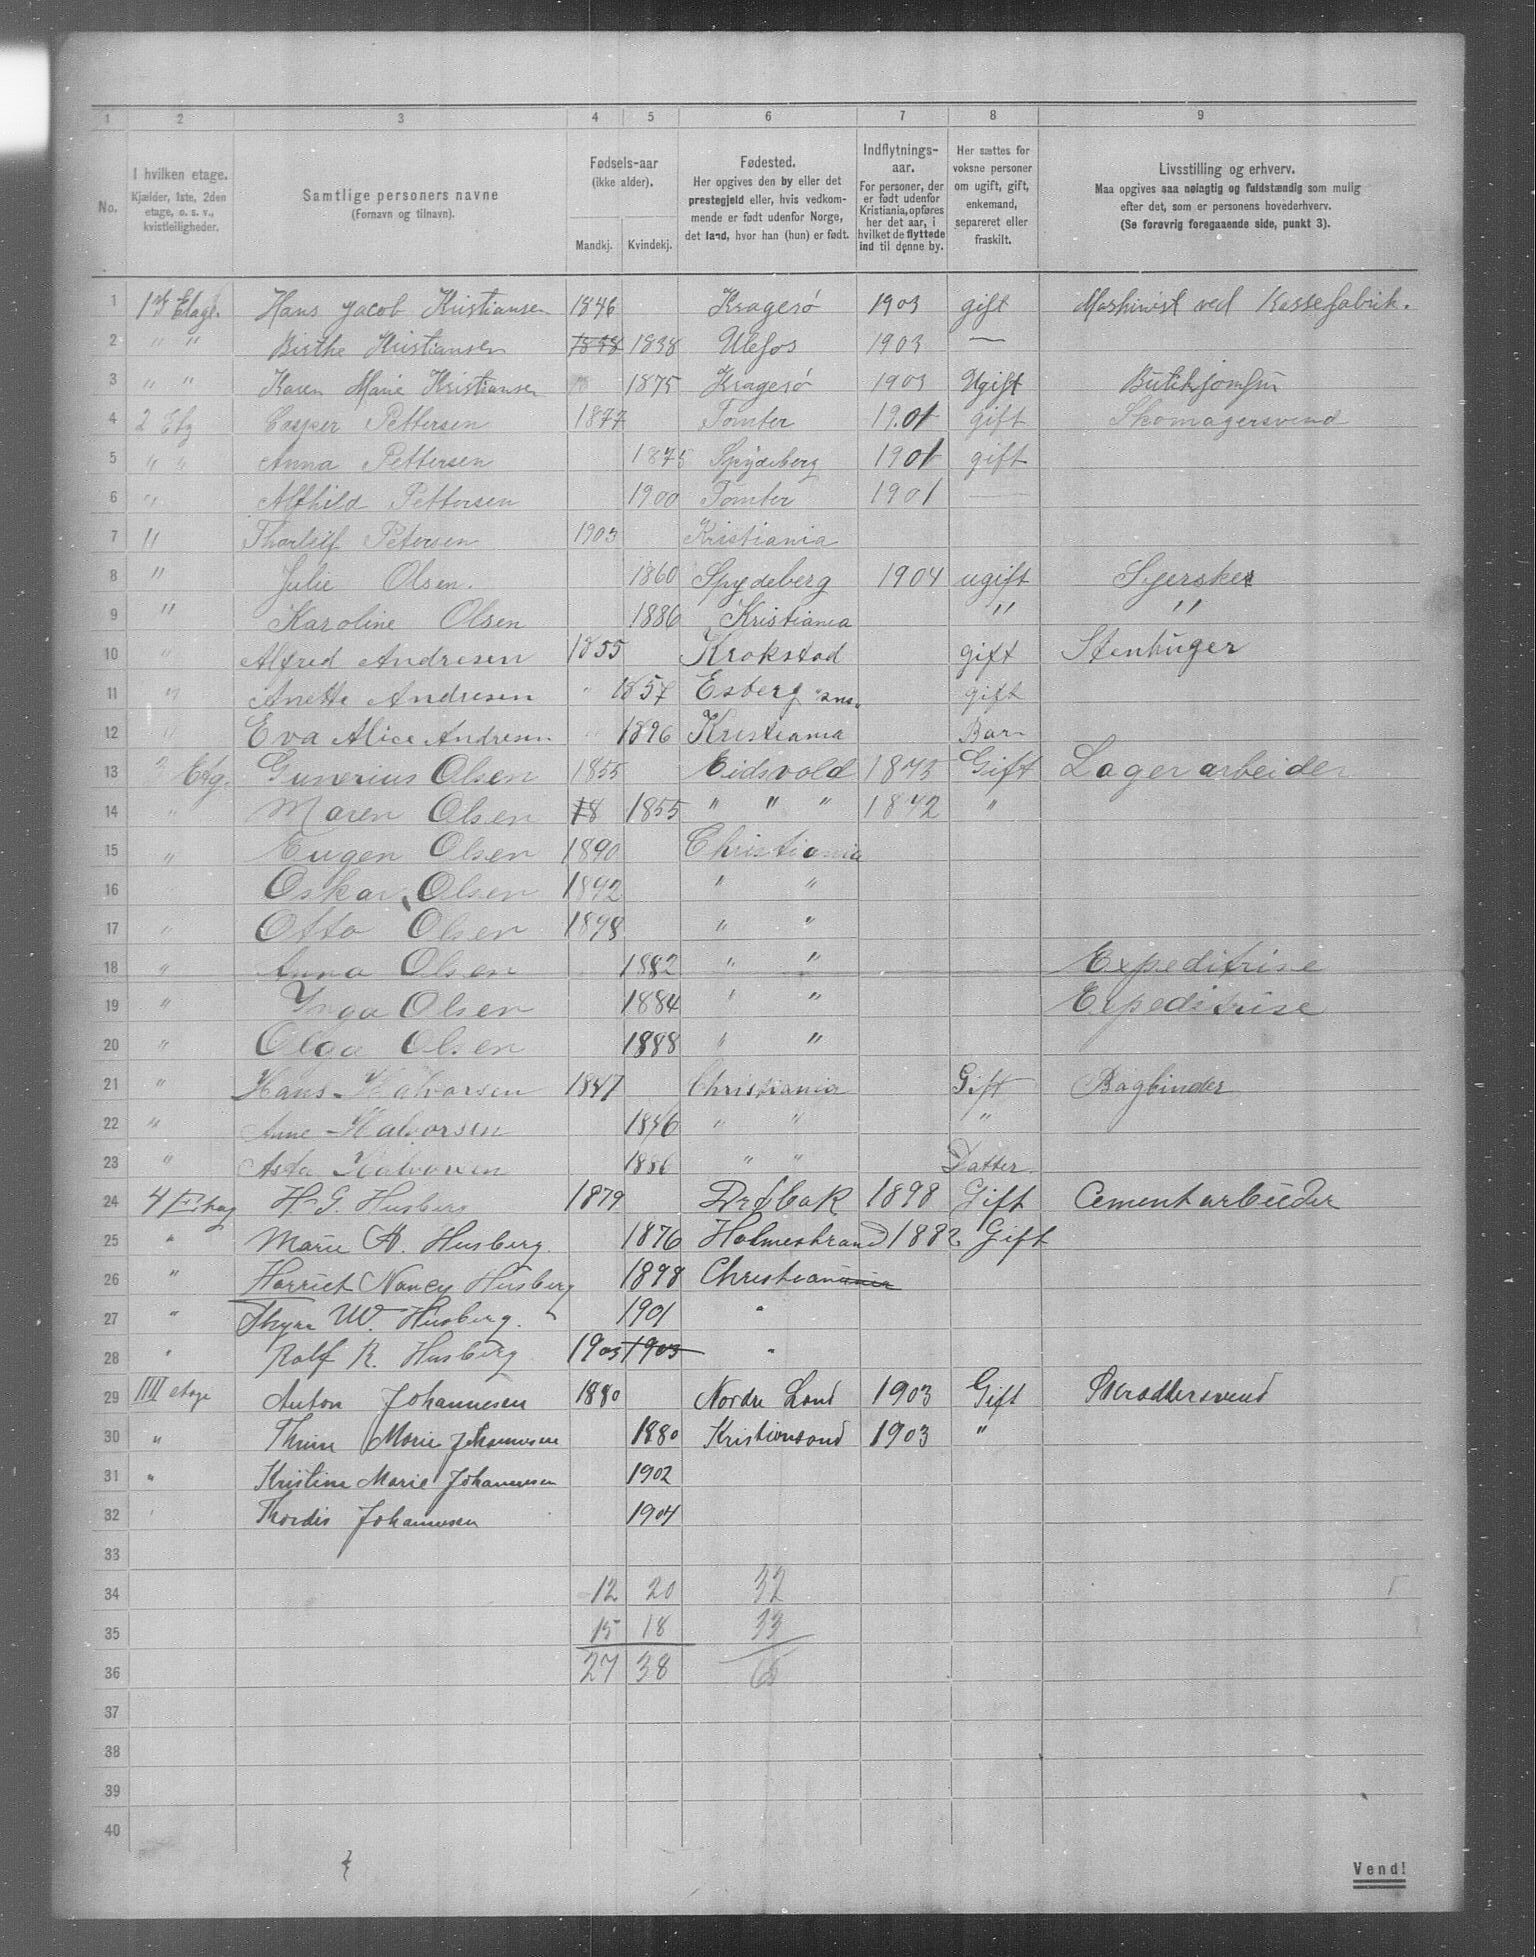 1 2 3 4 5 6 7 8 9
No. I hvilken etage. Kjælder, 1ste, 2den etage, o. s. v., kvistleiligheder. Samtlige personers navne (Fornavn og tilnavn). Fødsels-aar (ikke alder). Mandkj. Kvindekj. Fødested. Her opgives den by eller det prestegjeld eller, hvis vedkommende er født udenfor Norge, det land, hvor han (hun) er født. Indflytnings-aar. For personer, der er født udenfor Kristiania, opføres her det aar, i hvilket de flyttede ind til denne by. Her sættes for voksne personer om ugift, gift, enkemand, separeret eller fraskilt. Livsstilling og erhverv. Maa opgives saa nøiagtig og fuldstændig som mulig efter det, som er personens hovederhverv. (Se forøvrig foregaaende side, punkt 3).
1 1st Etage. Hans Jacob Kristiansen 1846 Kragerø 1903 gift Maskinist ved Kassefabrik.
2 " " Birthe Kristiansen 1838 1838 Ulefos 1903 —
3 " " Karen Marie Kristiansen 1875 Kragerø 1903 Ugift Butikjomfru
4 2 Etg Casper Pettersen 1877 Tomter 1901 gift Skomagersvend
5 " " Anna Pettersen 1875 Spydeberg 1901 gift
6 " Alfhild Pettersen 1900 Tomter 1901 —
7 " Thorleif Petersen 1903 Kristiania
8 " Julie Olsen. 1860 Spydeberg 1904 ugift Syerske
9 " Karoline Olsen 1886 Kristiania " "
10 " Alfred Andresen 1855 Krokstad gift Stenhuger
11 " Anette Andresen " 1857 Esberg gift
12 " Eva Alice Andresen 1896 Kristiania Barn
13 3 Etg. Gunerius Olsen 1855 Eidsvold 1873 Gift Lagerarbeider
14 " Maren Olsen 18 1855 " " " 1872 "
15 " Eugen Olsen 1890 Christiania
16 Oskar Olsen 1892 " "
17 " Otto Olsen 1898 " "
18 " Anna Olsen 1882 " " Expeditrise
19 " Inga Olsen 1884 " " Expeditrise
20 " Olga Olsen 1888 " "
21 " Hans Halvorsen 1847 Christiania Gift Bogbinder
22 " Anne Halvorsen 1846 " " "
23 " Asta Halvorsen 1886 " " Datter
24 4 Etag H. G. Husberg 1879 Drøbak 1898 Gift Cementarbeider
25 " Marie A. Husberg. 1876 Holmestrand 1882 Gift
26 " Harriet Nancy Husberg 1898 Christiania
27 " Thyra W. Husberg. 1901 "
28 " Ralf R. Husberg 1903 1903 "
29 IIII etage Anton Johannesen 1880 Nordre Land 1903 Gift Skræddersvend
30 " Thrine Marie Johannesen 1880 Kristiansand 1903 "
31 " Kristine Marie Johannesen 1902
32 " Thordis Johannesen 1904
33
34 12 20 32
35 15 18 33
36 27 38 65
37
38
39
40
Vend!